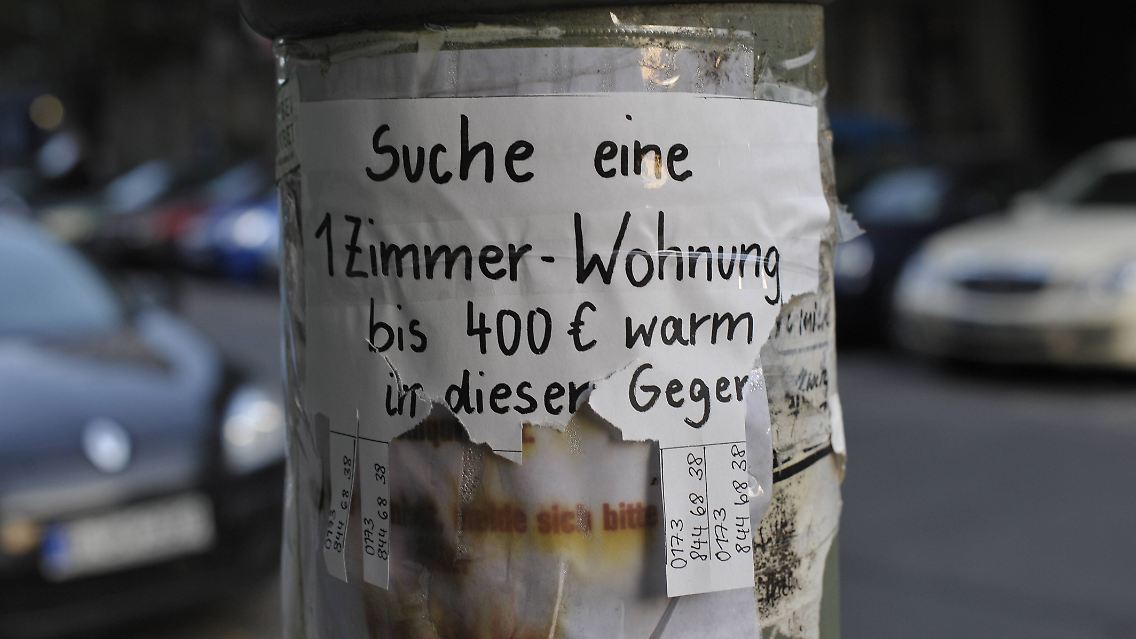 Suche eine
1 Zimmer-Wohnung
bis 400 € warm
in dieser Gegen
0173
844 68 38
0173
844 68 38
0173
844 68 38
0173
844 68 38
sich bitte